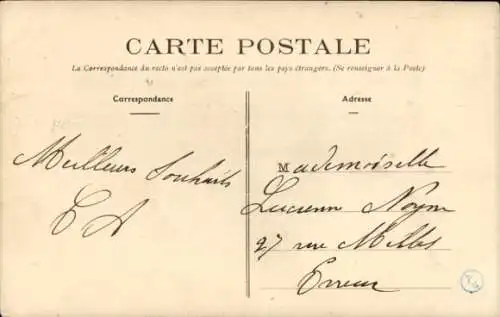 CARTE POSTALE
La Correspondance du recto n'est pas acceptée par tous les pays étrangers. (Se renseigner à la Poste)
Correspondance
Adresse
Meilleurs Souhaits
Mademoiselle
Lucienn Noyon
27 rue